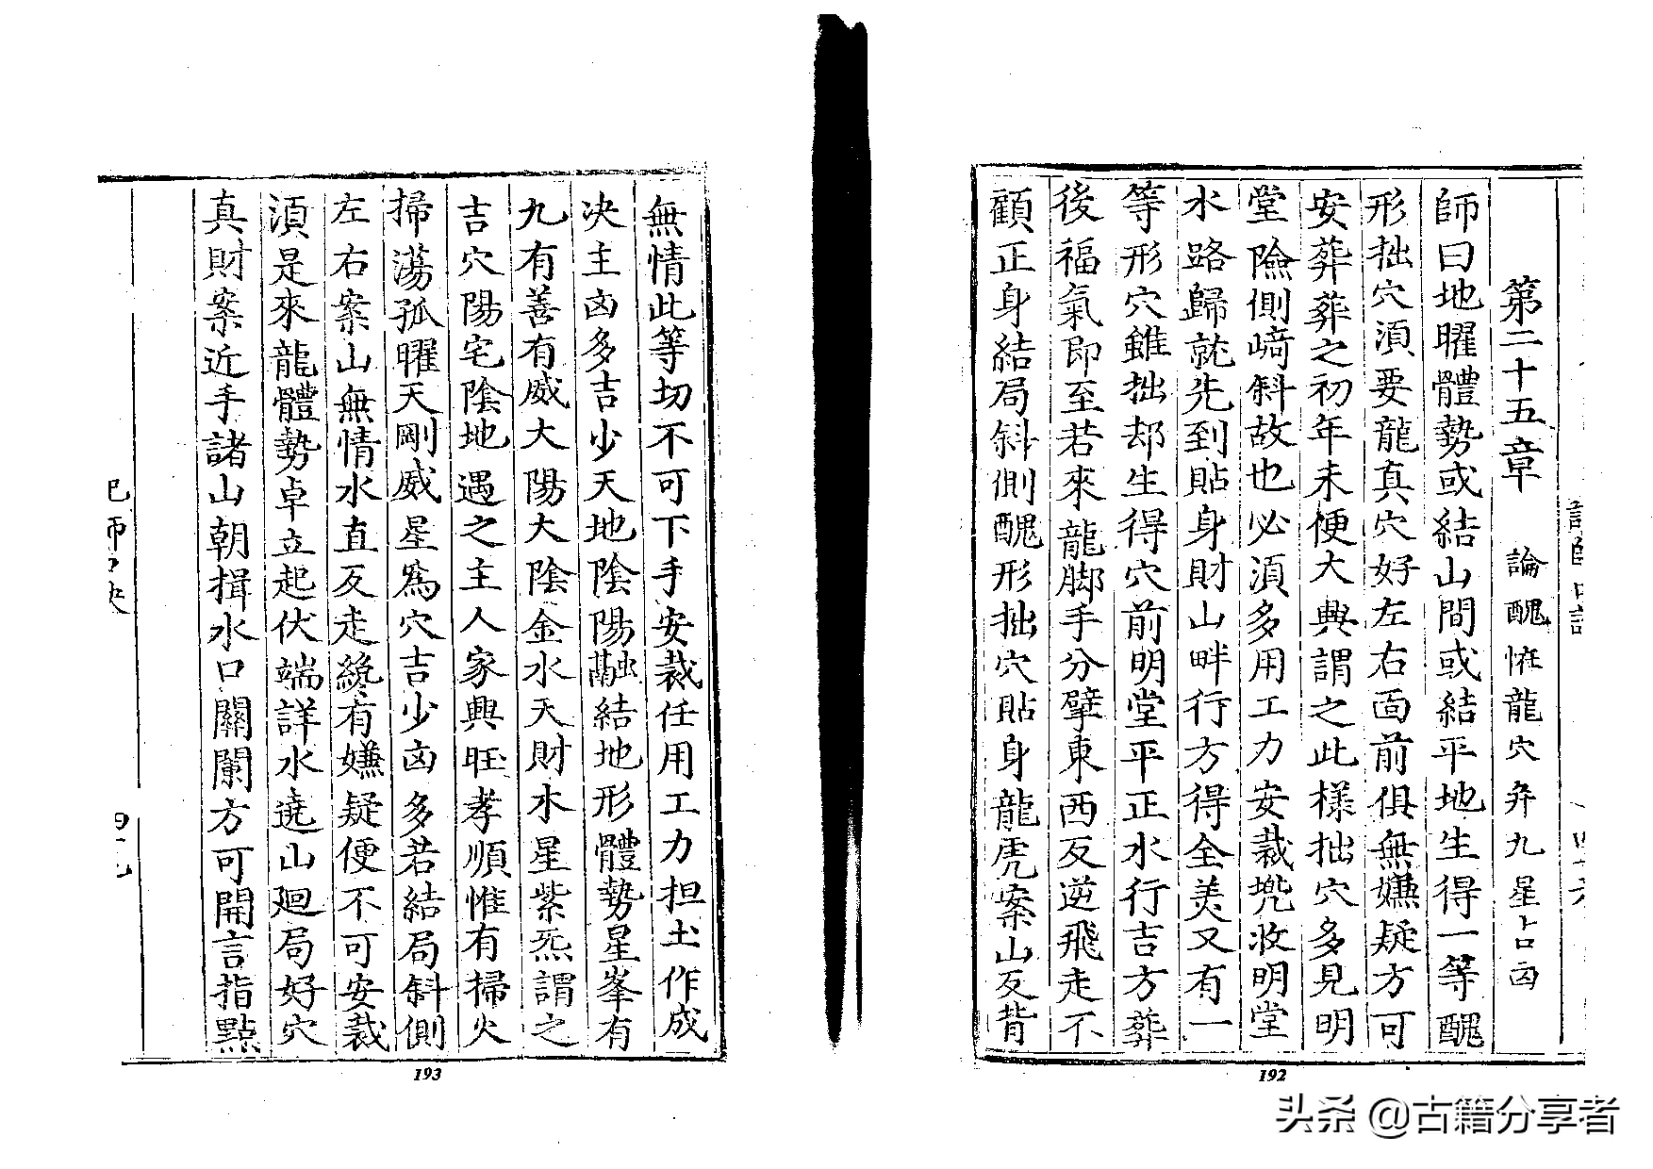 第二十五章　論醜怪龍穴弁九星占凶
師曰地曜體勢或結山間或結平地生得一等醜
形拙穴湏要龍真穴好左右面前俱無嫌疑方可
安葬葬之初年未便大興謂之此様拙穴多見明
堂險側﨑斜故也必湏多用工力安裁兠收明堂
水路歸就先到貼身財山畔行方得全美又有一
等形穴雖拙却生得穴前明堂平正水行吉方葬
後福氣即至若來龍脚手分擘東西反逆飛走不
顧正身結局斜側醜形拙穴貼身龍虎案山反背
192
無情此等切不可下手安裁任用工力担土作成
决主凶多吉少天地陰陽融結地形體勢星峯有
九有善有威大陽大陰金水天財水星紫炁謂之
吉穴陽宅陰地遇之主人家興旺孝順惟有掃火
掃蕩孤曜天剛威星為穴吉少凶多若結局斜側
左右案山無情水直反走縂有嫌疑便不可安裁
湏是來龍體勢卓立起伏端詳水遶山廻局好穴
真財案近手諸山朝揖水口關闌方可開言指點
193
头条 @古籍分享者